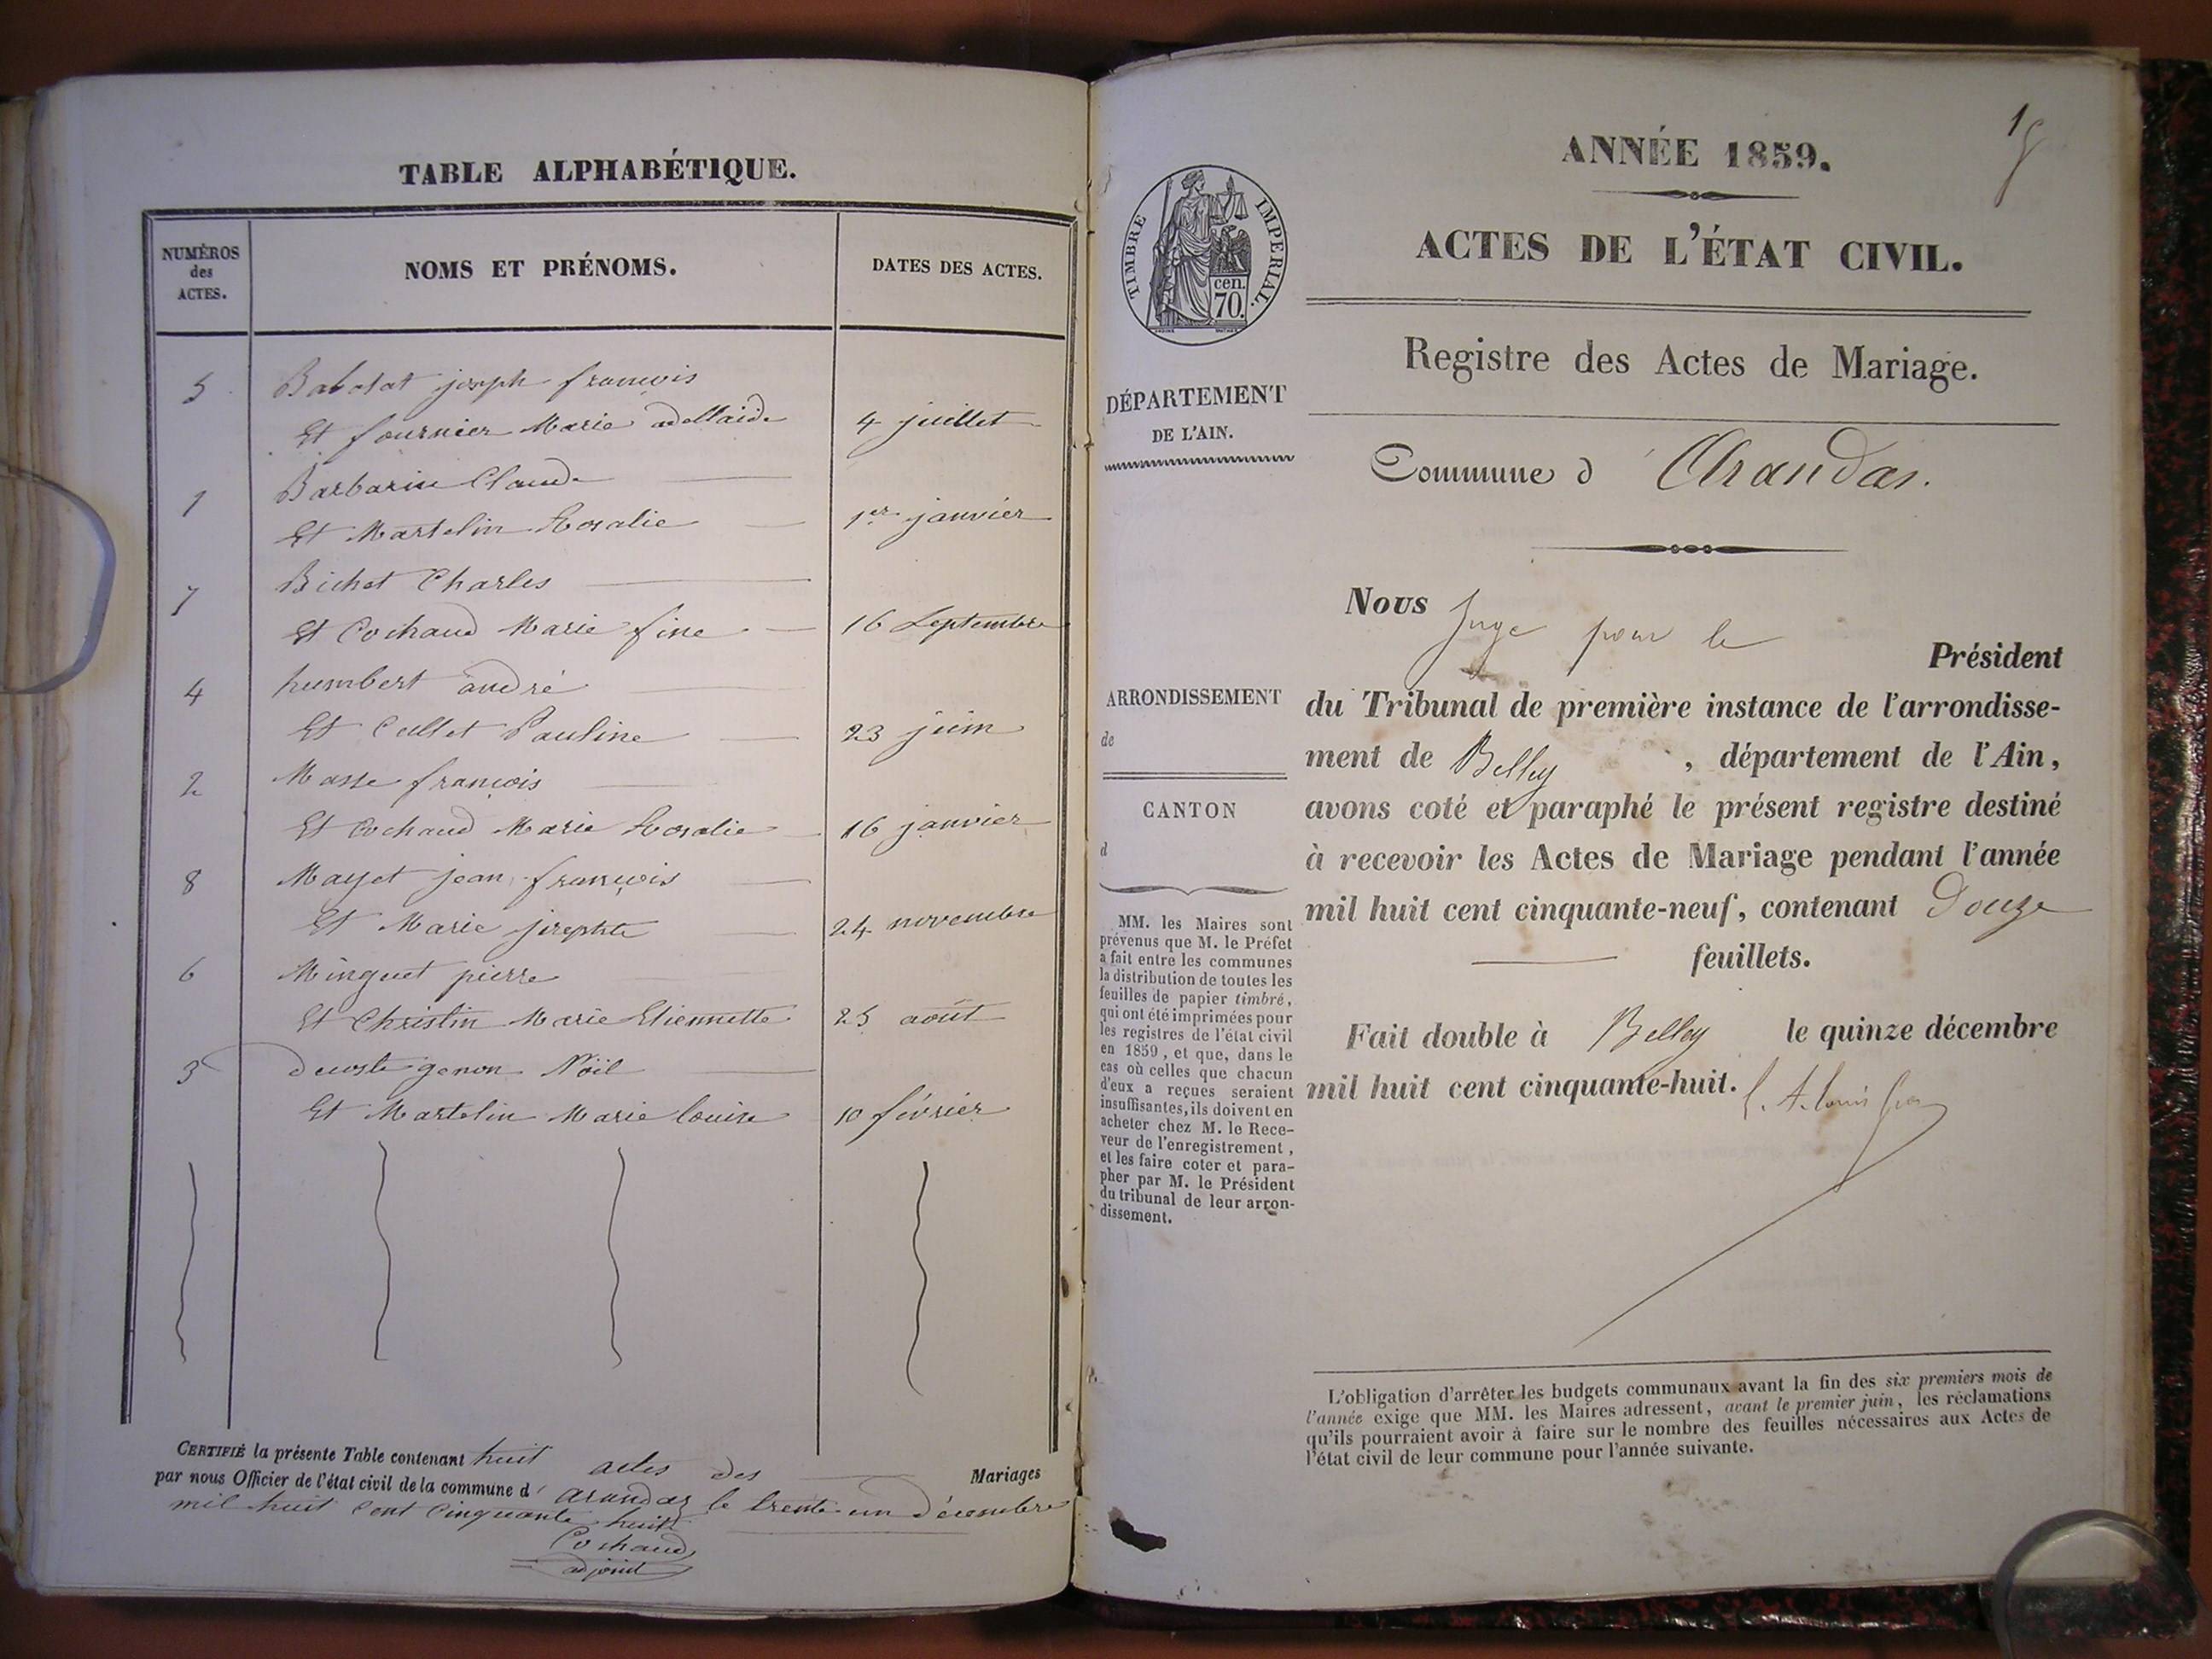 TABLE ALPHABÉTIQUE.
NUMÉROS
des
ACTES.
NOMS ET PRÉNOMS.
DATES DES ACTES.
5 Babolat joseph françois
Et fournier Marie adellaide 4 juillet
1 Barbarin Claude
Et Martelin Rosalie 1er janvier
7 Bichet Charles
Et Cochaud Marie fine 16 Septembre
4 humbert andré
Et Cullet Pauline 23 juin
2 Masse françois
Et Cochaud Marie Rosalie 16 janvier
8 Mayet jean françois
Et Marie josephte 24 novembre
6 Minguet pierre
Et Christin Marie Etiennette 25 août
3 decoste genon Nöil
Et Martelin Marie louise 10 février
CERTIFIÉ la présente Table contenant huit actes des Mariages
par nous Officier de l'état civil de la commune d' arandas le trente un décembre
mil huit cent cinquante huit
Cochaud
adjoint
1
ANNÉE 1859.
ACTES DE L'ÉTAT CIVIL.
TIMBRE IMPERIAL.
cen.
70.
Registre des Actes de Mariage.
DÉPARTEMENT
DE L'AIN.
Commune d' Arandas.
Nous Juge pour le Président
ARRONDISSEMENT
de
CANTON
d
du Tribunal de première instance de l'arrondisse-
ment de Belley, département de l'Ain,
avons coté et paraphé le présent registre destiné
à recevoir les Actes de Mariage pendant l'année
mil huit cent cinquante-neuf, contenant Douze
feuillets.
Fait double à Belley le quinze décembre
mil huit cent cinquante-huit.
MM. les Maires sont
prévenus que M. le Préfet
a fait entre les communes
la distribution de toutes les
feuilles de papier timbré,
qui ont été imprimées pour
les registres de l'état civil
en 1859, et que, dans le
cas où celles que chacun
d'eux a reçues seraient
insuffisantes, ils doivent en
acheter chez M. le Rece-
veur de l'enregistrement,
et les faire coter et para-
pher par M. le Président
du tribunal de leur arron-
dissement.
L'obligation d'arrêter les budgets communaux avant la fin des six premiers mois de
l'année exige que MM. les Maires adressent, avant le premier juin, les réclamations
qu'ils pourraient avoir à faire sur le nombre des feuilles nécessaires aux Actes de
l'état civil de leur commune pour l'année suivante.